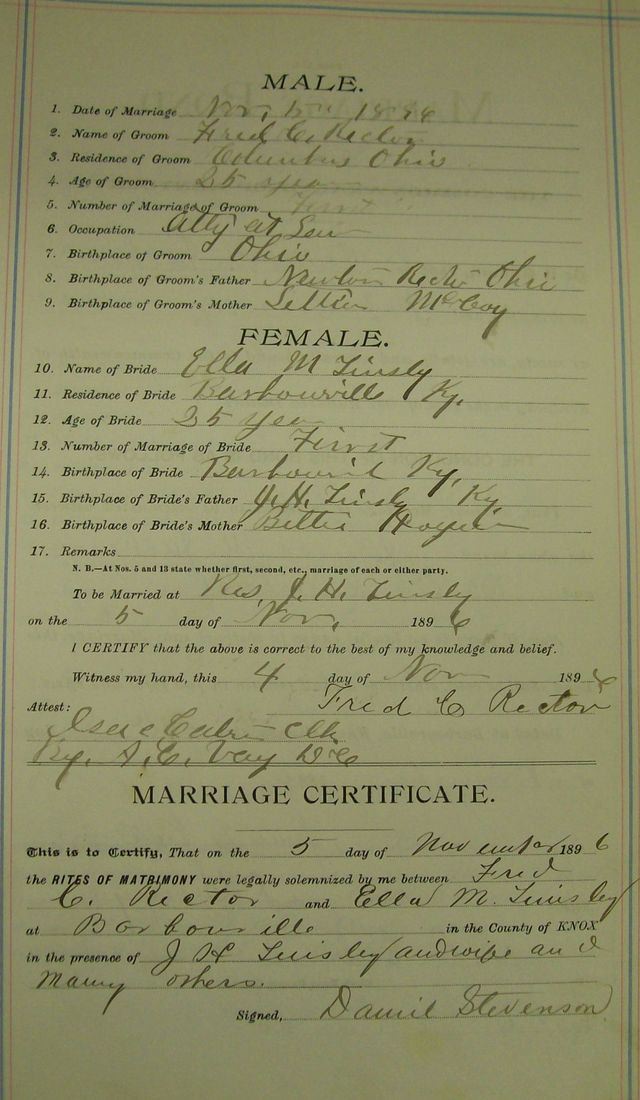 MALE.
1. Date of Marriage Nov, 5th, 1896
2. Name of Groom Fred C. Rector
3. Residence of Groom Columbus Ohio
4. Age of Groom 25 years
5. Number of Marriage of Groom First
6. Occupation Atty at Law
7. Birthplace of Groom Ohio
8. Birthplace of Groom's Father Newton Rector Ohio
9. Birthplace of Groom's Mother McCoy
FEMALE.
10. Name of Bride Ella M Tinsly
11. Residence of Bride Barbourville Ky.
12. Age of Bride 25 year
13. Number of Marriage of Bride First
14. Birthplace of Bride Ky,
15. Birthplace of Bride's Father J. H. Tinsly Ky.
16. Birthplace of Bride's Mother Bettie
17. Remarks
N. B.—At Nos. 5 and 13 state whether first, second, etc., marriage of each or either party.
To be Married at Res, J. H. Tinsly
on the 5 day of Nov, 1896
I CERTIFY that the above is correct to the best of my knowledge and belief.
Witness my hand, this 4 day of Nov 1896
Fred C Rector
Attest:
Clk
By. D C
MARRIAGE CERTIFICATE.
This is to Certify, That on the 5 day of November 1896
the RITES OF MATRIMONY were legally solemnized by me between Fred
C. Rector and Ella M. Tinsley
at Barbourville in the County of KNOX
in the presence of J H Tinsley and wife and
many others.
Signed, Daniel Stevenson